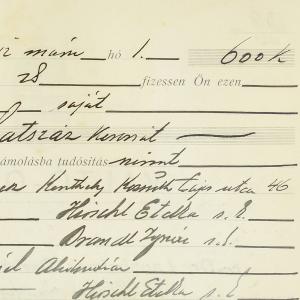 márc hó 1. 600 K
28 fizessen Ön ezen
saját
Hatszáz Koronát
ámolásba tudósítás nincs
Keszthely Kossuth Lajos utca 46
Hirschl Etelka s. k.
Brandl Ignác s. k.
Hirschl Etelka s. k.